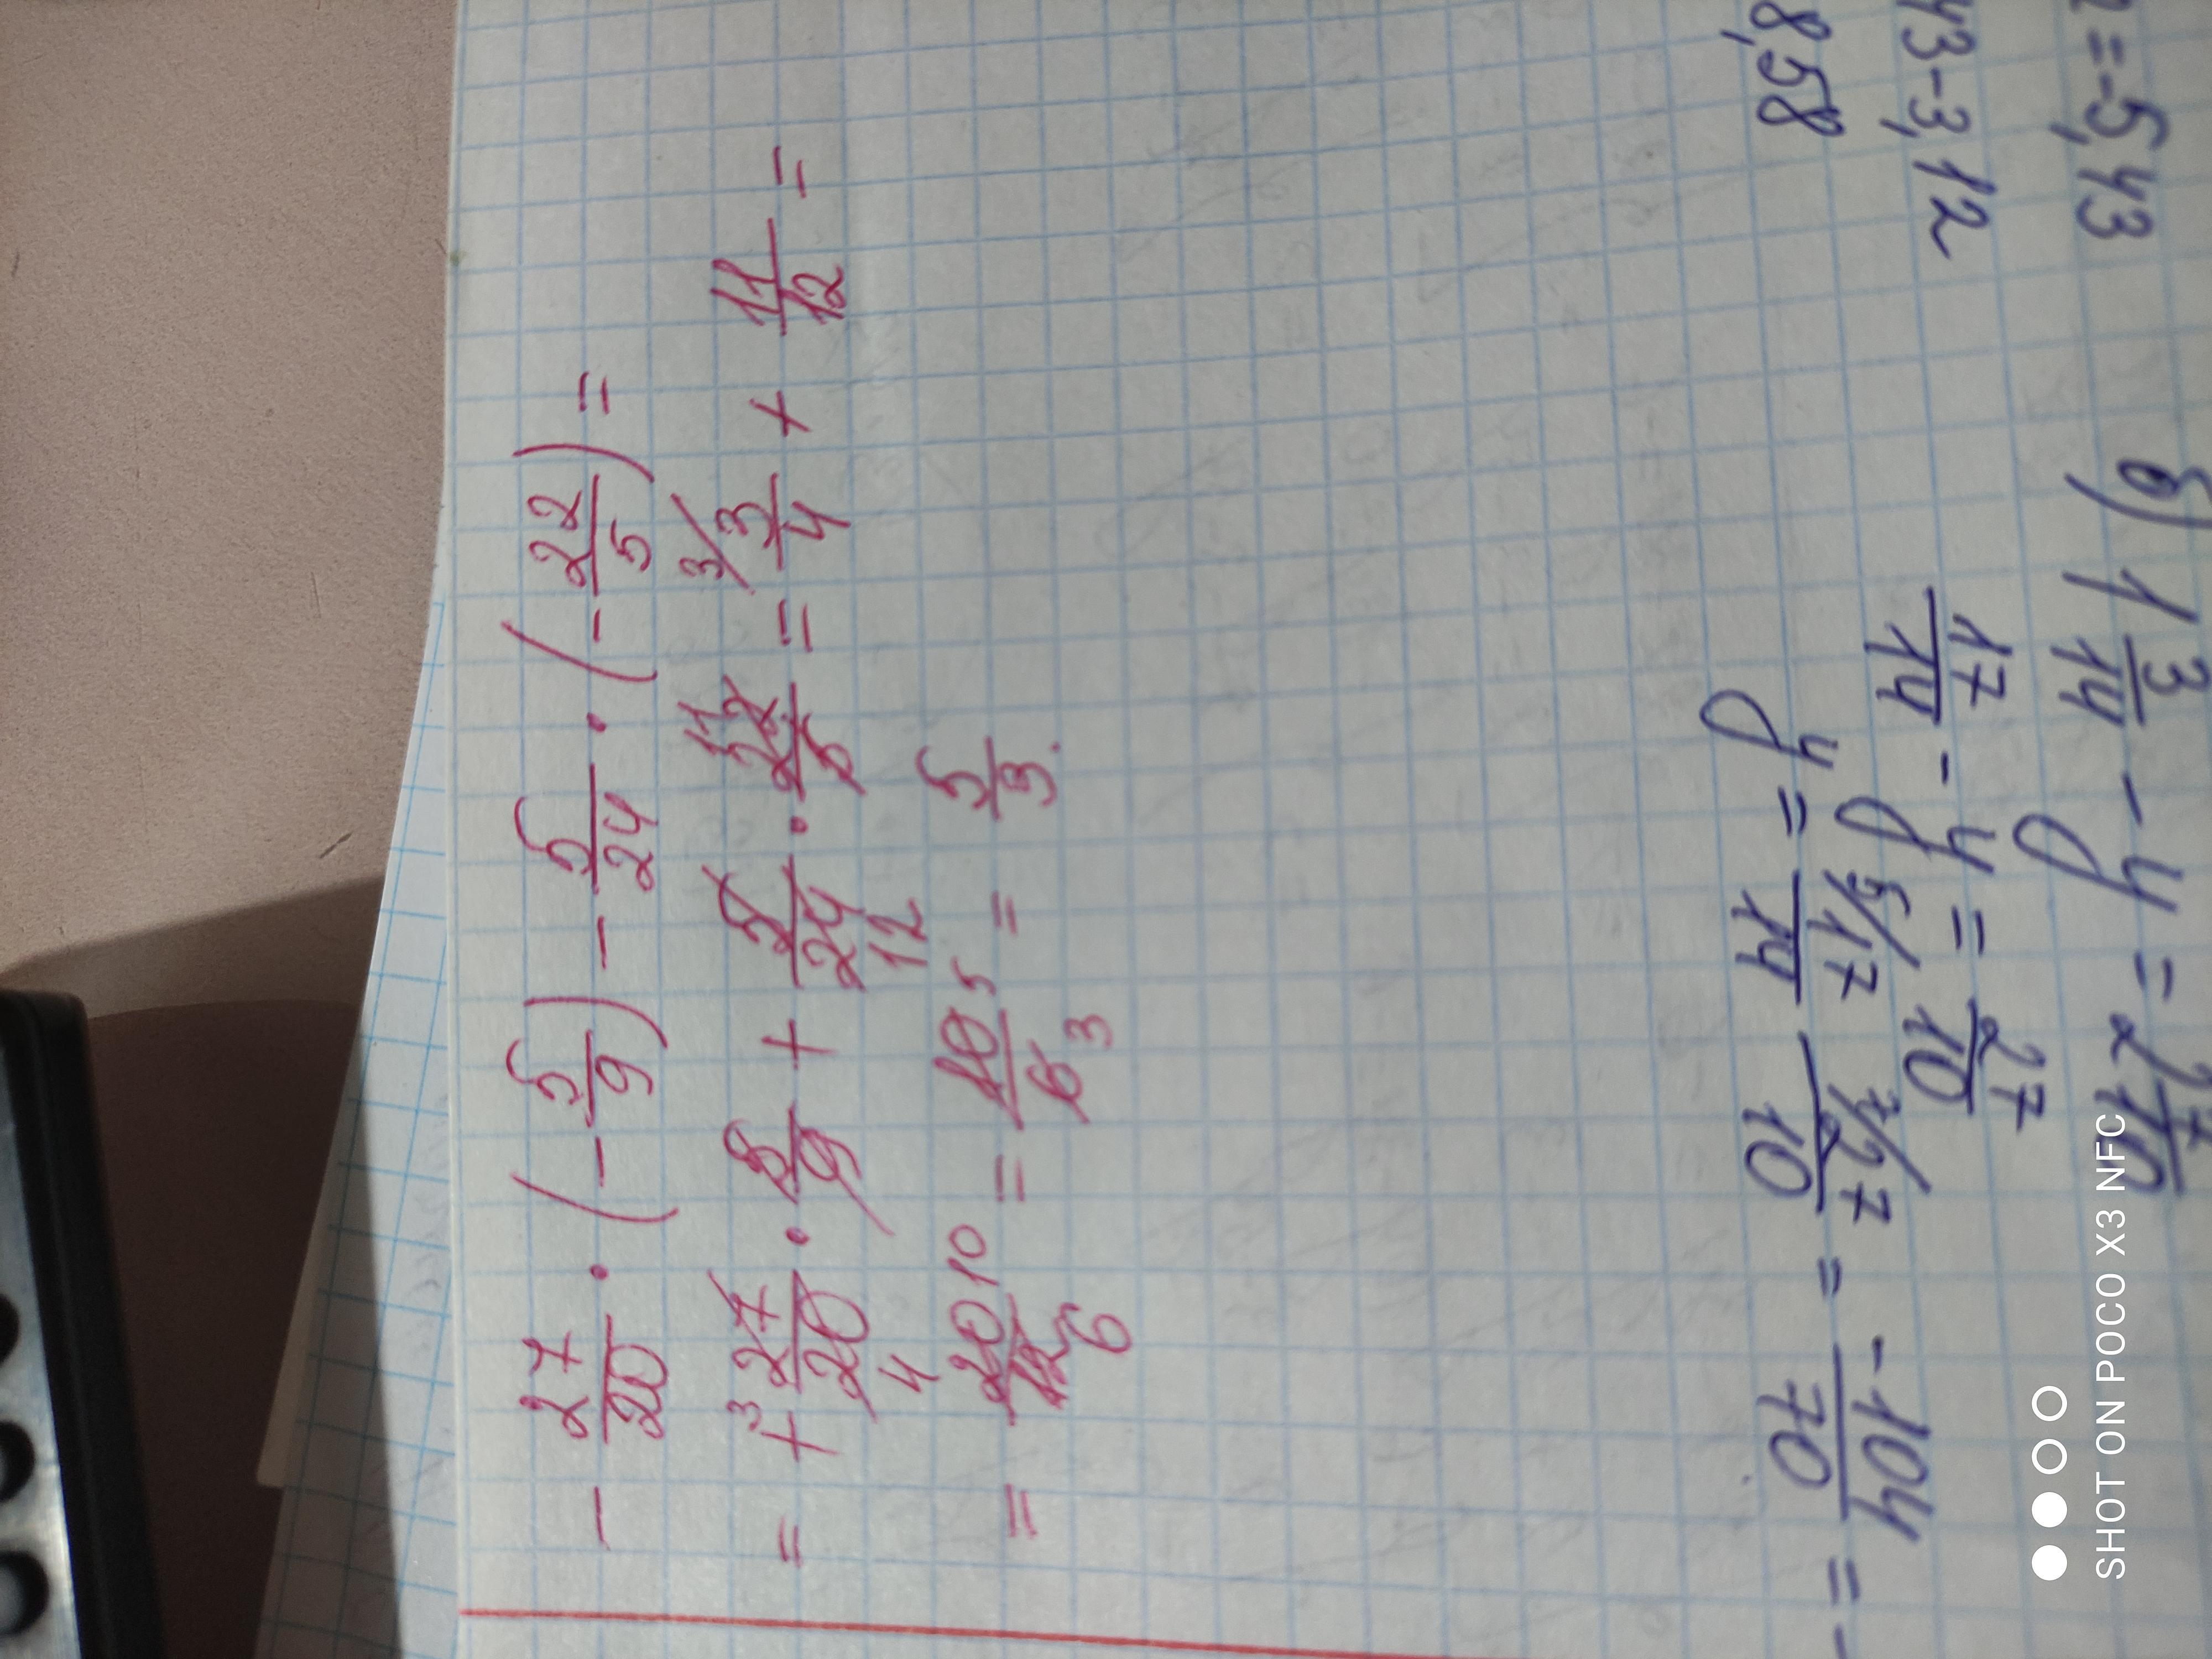 - 27/20 · (- 5/9) - 5/24 · (- 22/5) =
= + ³27/20 4 · 5/9 + 5/24 12 · 22/5 11 = 3/ 3/4 + 11/12 =
= 20/12 10 6 = 10/6 5 3 = 5/3.
= -5,43
43-3,12
8,58
б) 1 3/14 - y = 2 7/10
17/14 - y = 27/10
y = 5/ 17/14 - 7/ 27/10 = -104/70 = -
SHOT ON POCO X3 NFC